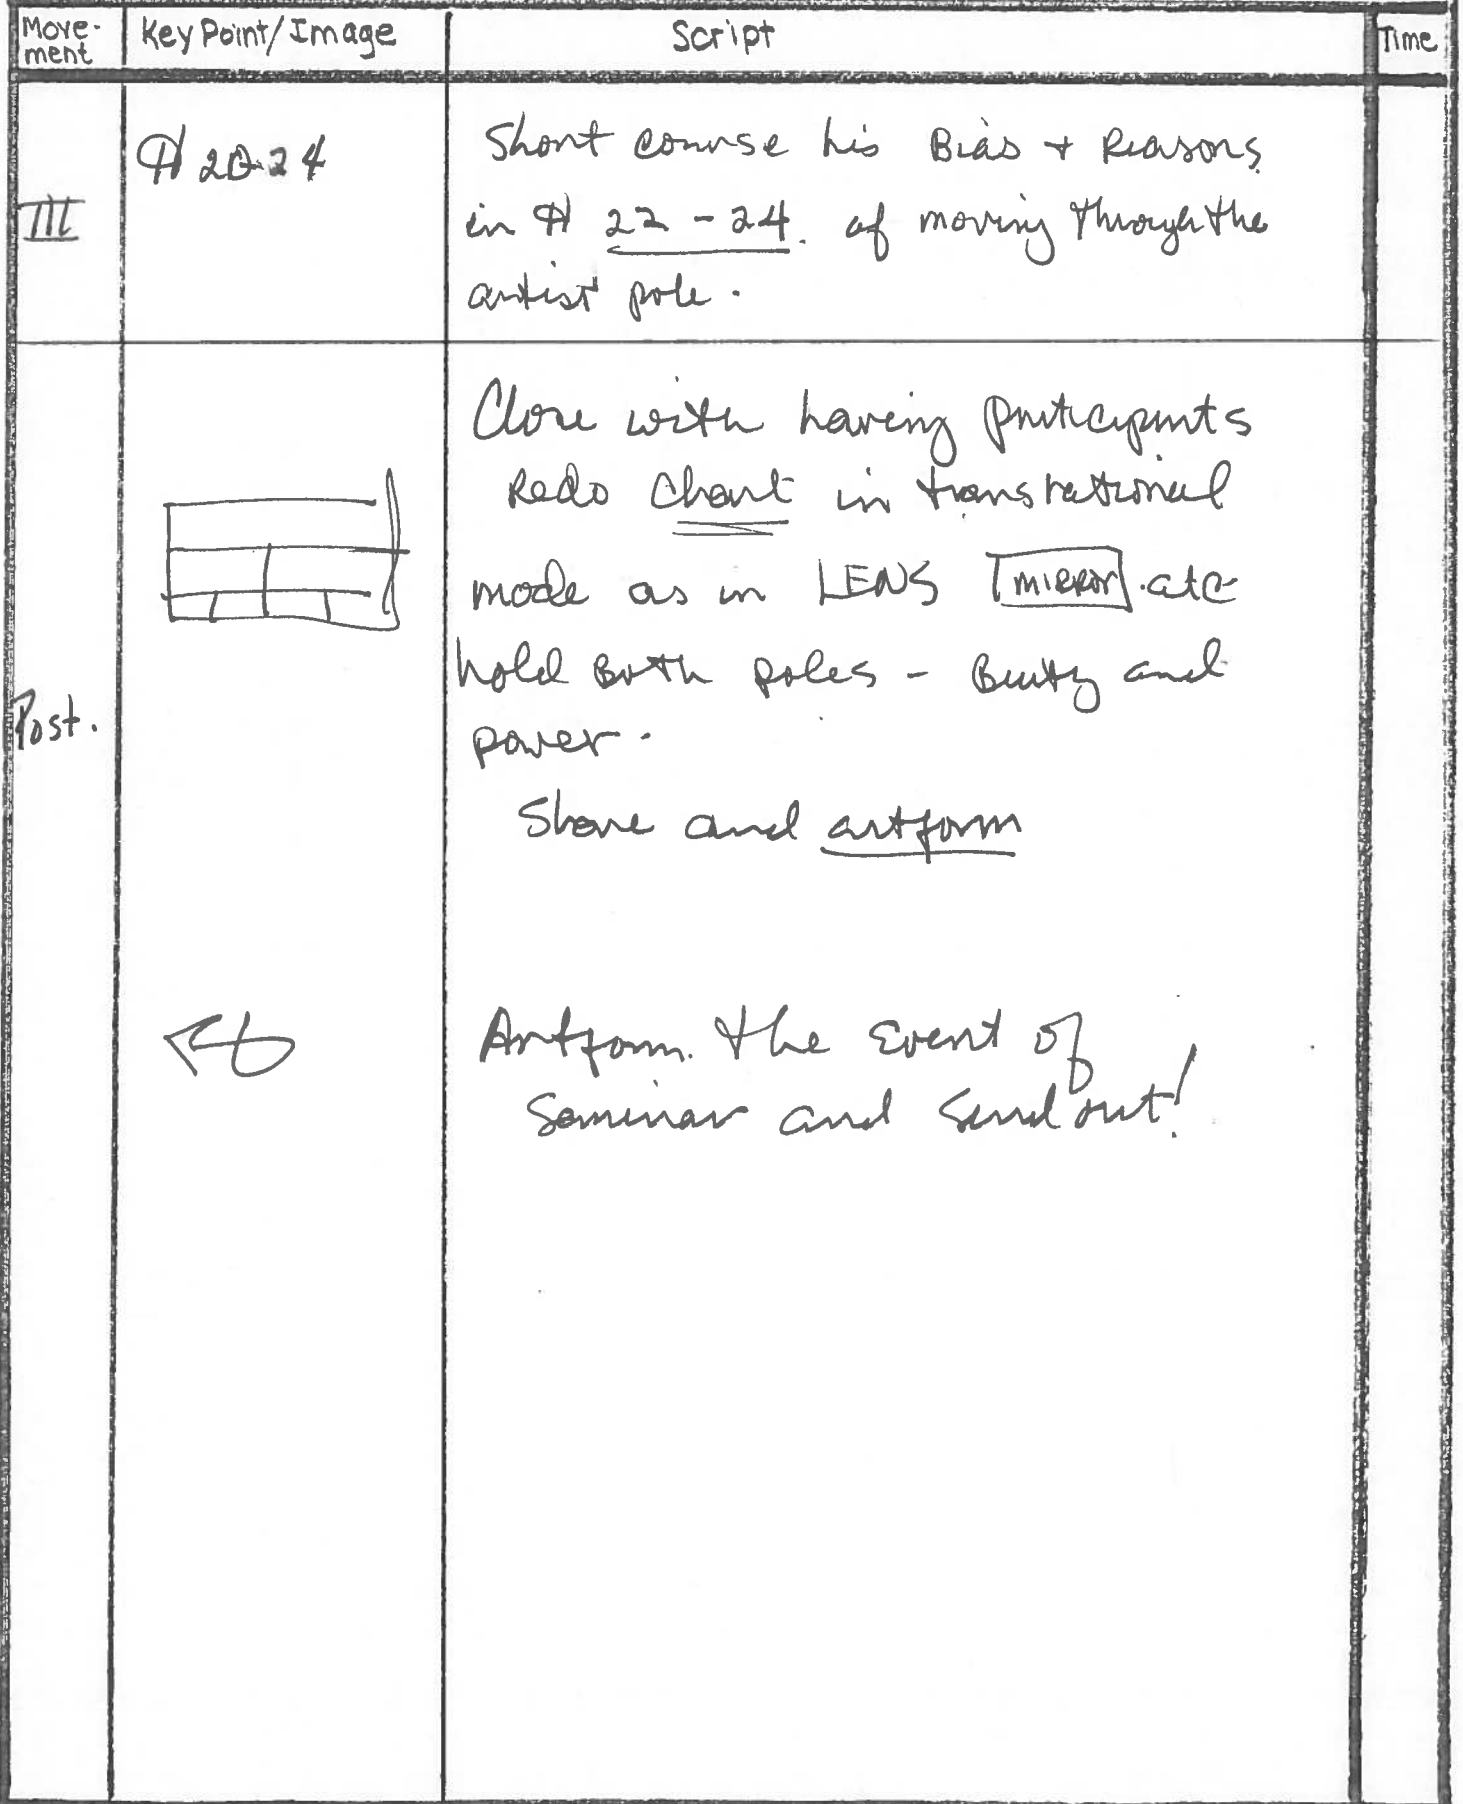 Move-ment
Key Point/Image
Script
Time
III
¶ 20-24
Short course his Bias + Reasons
in ¶ 22-24. of moving through the
artist pole.
Post.
Close with having participants
Redo Chart in transrational
mode as in LENS MIRROR etc
hold Both poles - Beuty and
power.
Share and artform
Artform the Event of
Seminar and Send out!